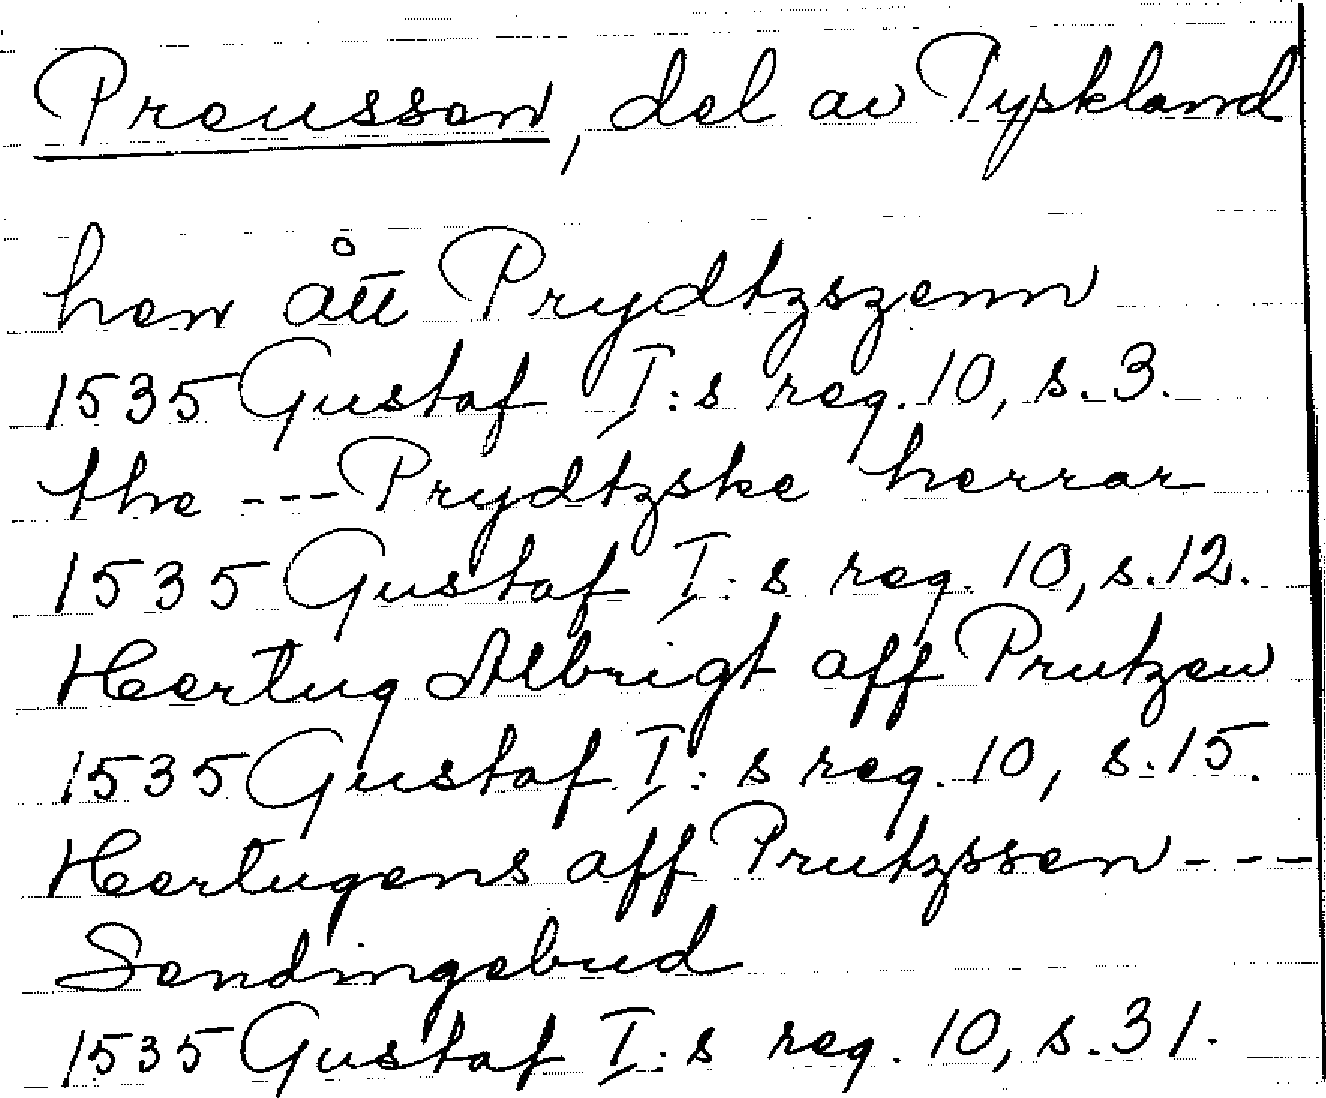 Preussen, del av Tyskland
hen ått Prydtzszenn
1535 Gustaf I:s reg. 10, s. 3.
the --- Prydtzske herrar
1535 Gustaf I:s reg. 10, s. 12.
Hertug Albrigt aff Prutzen
1535 Gustaf I:s reg. 10, s. 15.
Hertugens aff Prutzssen ---
Sendingebud
1535 Gustaf I:s reg. 10, s. 31.